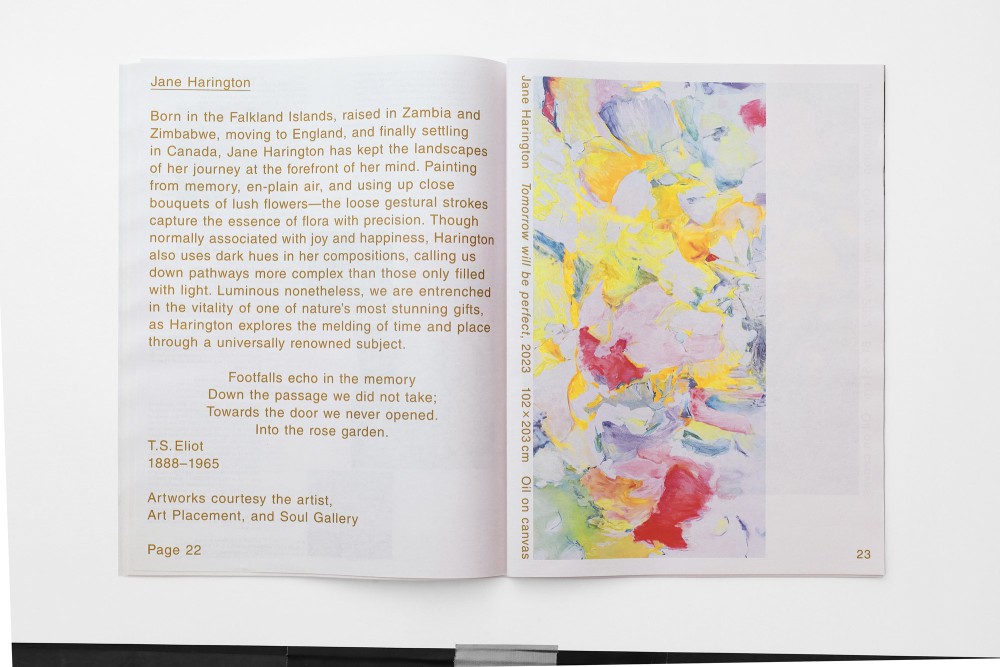 Jane Harington
Born in the Falkland Islands, raised in Zambia and
Zimbabwe, moving to England, and finally settling
in Canada, Jane Harington has kept the landscapes
of her journey at the forefront of her mind. Painting
from memory, en-plain air, and using up close
bouquets of lush flowers—the loose gestural strokes
capture the essence of flora with precision. Though
normally associated with joy and happiness, Harington
also uses dark hues in her compositions, calling us
down pathways more complex than those only filled
with light. Luminous nonetheless, we are entrenched
in the vitality of one of nature's most stunning gifts,
as Harington explores the melding of time and place
through a universally renowned subject.
Footfalls echo in the memory
Down the passage we did not take;
Towards the door we never opened.
Into the rose garden.
T.S. Eliot
1888–1965
Artworks courtesy the artist,
Art Placement, and Soul Gallery
Page 22
Jane Harington Tomorrow will be perfect, 2023 102 × 203 cm Oil on canvas
23